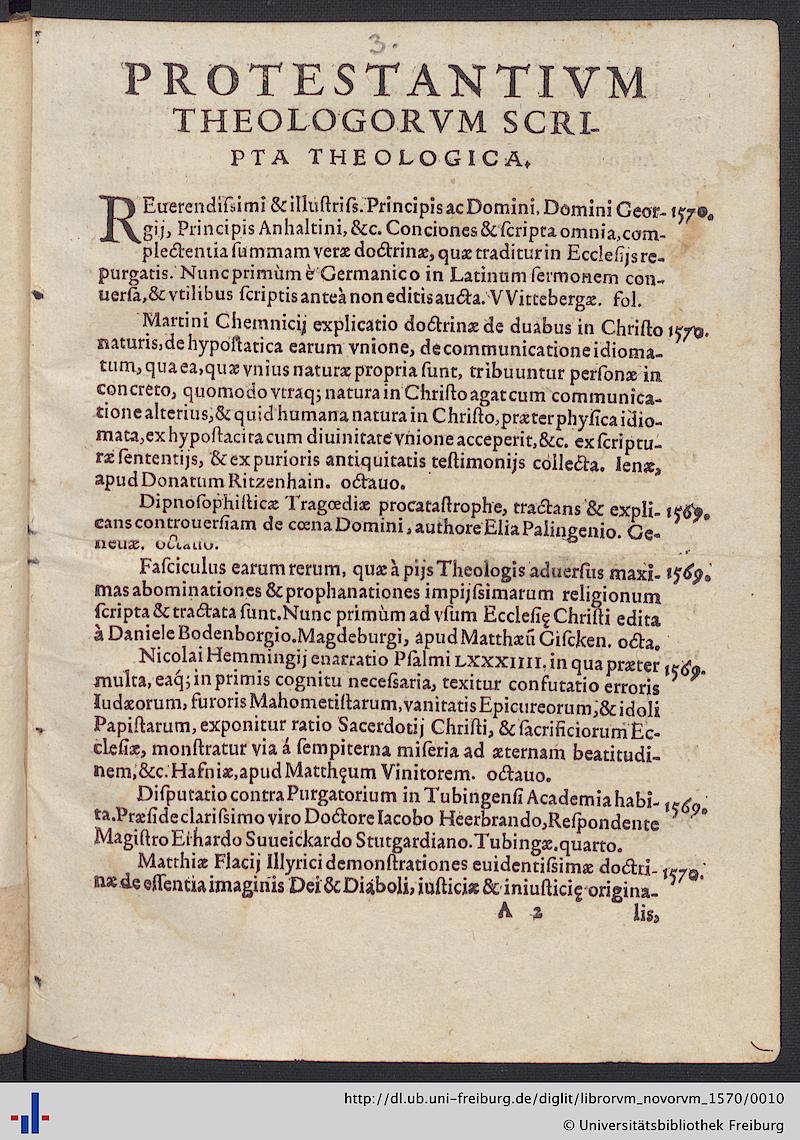 3.
PROTESTANTIVM
THEOLOGORVM SCRI-
PTA THEOLOGICA.
REuerendiſsimi & illuſtriſs. Principis ac Domini, Domini Geor- 1570.
gij, Principis Anhaltini, &c. Conciones & ſcripta omnia, com-
plectentia ſummam veræ doctrinæ, quæ traditur in Eccleſijs re-
purgatis. Nunc primùm è Germanico in Latinum ſermonem con-
uerſa, & vtilibus ſcriptis anteà non editis aucta. VVittebergæ. fol.
Martini Chemnicij explicatio doctrinæ de duabus in Chriſto 1570.
naturis, de hypoſtatica earum vnione, de communicatione idioma-
tum, qua ea, quæ vnius naturæ propria ſunt, tribuuntur perſonæ in
concreto, quomodo vtraq; natura in Chriſto agat cum communica-
tione alterius, & quid humana natura in Chriſto, præter phyſica idio-
mata, ex hypoſtacita cum diuinitate vnione acceperit, &c. ex ſcriptu-
ræ ſententijs, & ex purioris antiquitatis teſtimonijs collecta. Ienæ,
apud Donatum Ritzenhain. octauo.
Dipnoſophiſticæ Tragœdiæ procataſtrophe, tractans & expli- 1569.
cans controuerſiam de cœna Domini, authore Elia Palingenio. Ge-
neuæ. octauo.
Faſciculus earum rerum, quæ à pijs Theologis aduerſus maxi- 1569.
mas abominationes & prophanationes impijſsimarum religionum
ſcripta & tractata ſunt. Nunc primùm ad vſum Eccleſię Chriſti edita
à Daniele Bodenborgio. Magdeburgi, apud Matthæū Giſcken. octa.
Nicolai Hemmingij enarratio Pſalmi LXXXIIII. in qua præter 1569.
multa, eaq; in primis cognitu neceſſaria, texitur confutatio erroris
Iudæorum, furoris Mahometiſtarum, vanitatis Epicureorum, & idoli
Papiſtarum, exponitur ratio Sacerdotij Chriſti, & ſacrificiorum Ec-
cleſiæ, monſtratur via á ſempiterna miſeria ad æternam beatitudi-
nem, &c. Hafniæ, apud Matthęum Vinitorem. octauo.
Diſputatio contra Purgatorium in Tubingenſi Academia habi- 1569.
ta. Præſide clariſsimo viro Doctore Iacobo Heerbrando, Reſpondente
Magiſtro Eihardo Suueickardo Stutgardiano. Tubingæ. quarto.
Matthiæ Flacij Illyrici demonſtrationes euidentiſsimæ doctri- 1570.
næ de eſſentia imaginis Dei & Diaboli, iuſticiæ & iniuſticię origina-
A 2 lis,
http://dl.ub.uni-freiburg.de/diglit/librorvm_novorvm_1570/0010
© Universitätsbibliothek Freiburg